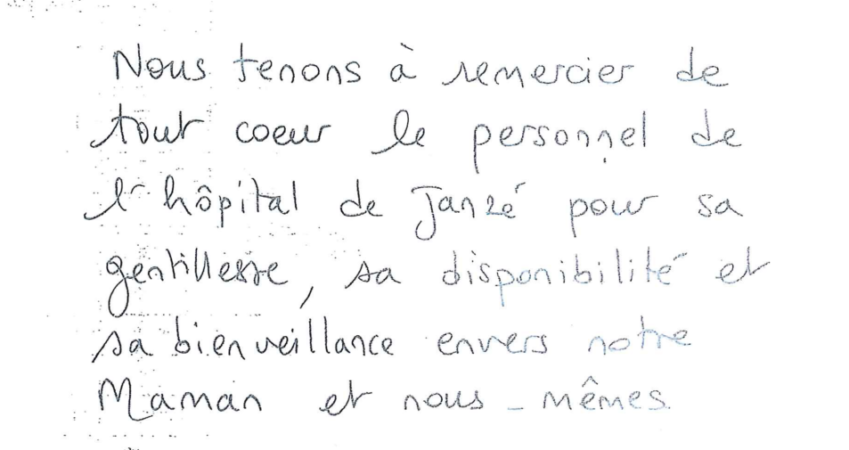 Nous tenons à remercier de
tout coeur le personnel de
l'hôpital de Janzé pour sa
gentillesse, sa disponibilité et
sa bienveillance envers notre
Maman et nous-mêmes.